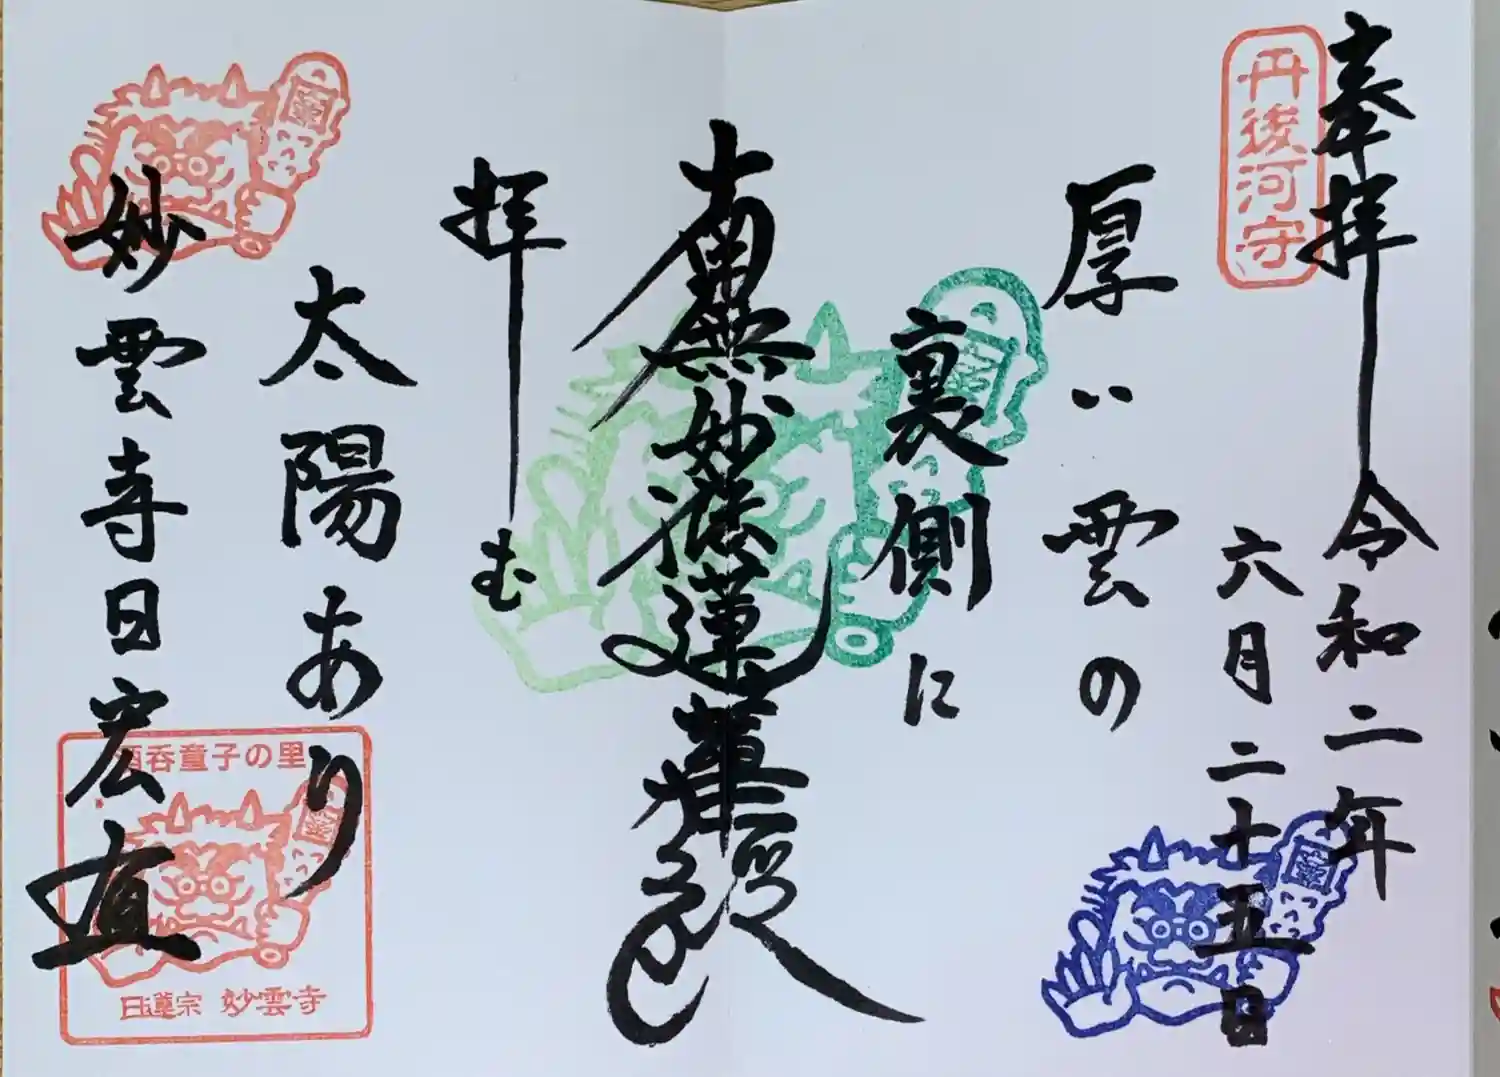 奉拝 令和二年
六月二十五日
丹後河守
厚い雲の
裏側に
南無妙法蓮華経
拝む
太陽あり
妙雲寺日宏
酒呑童子の里
日蓮宗 妙雲寺